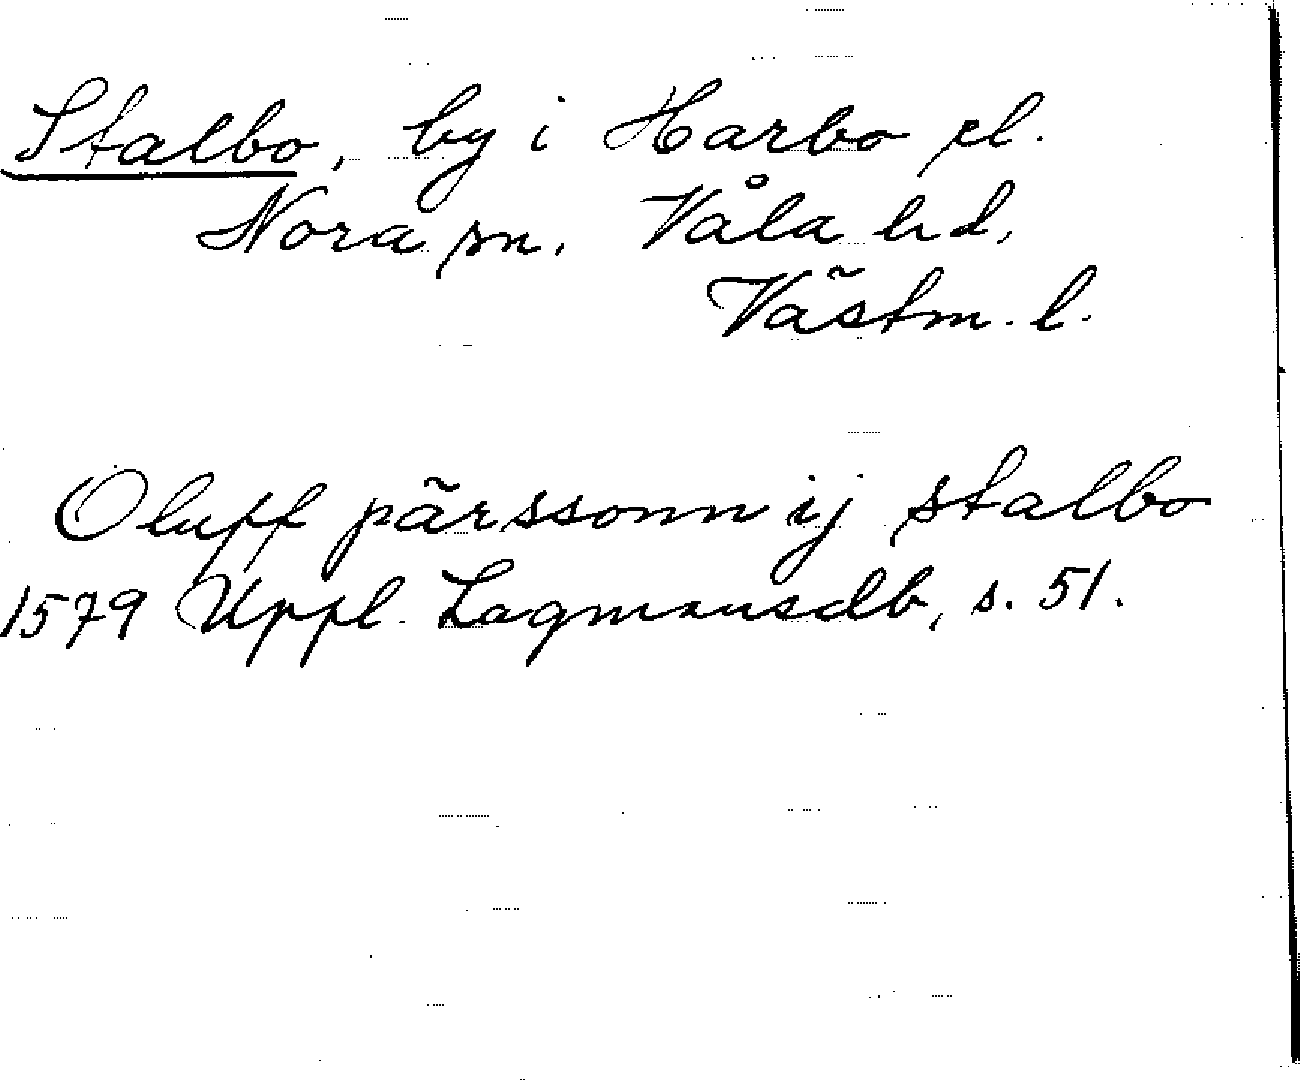 Stalbo, by i Harbo el.
Nora sn. Våla hd,
Västm. l.
Oluff pärssonn ij stalbo
1579 Uppl. Lagmansdb, s. 51.